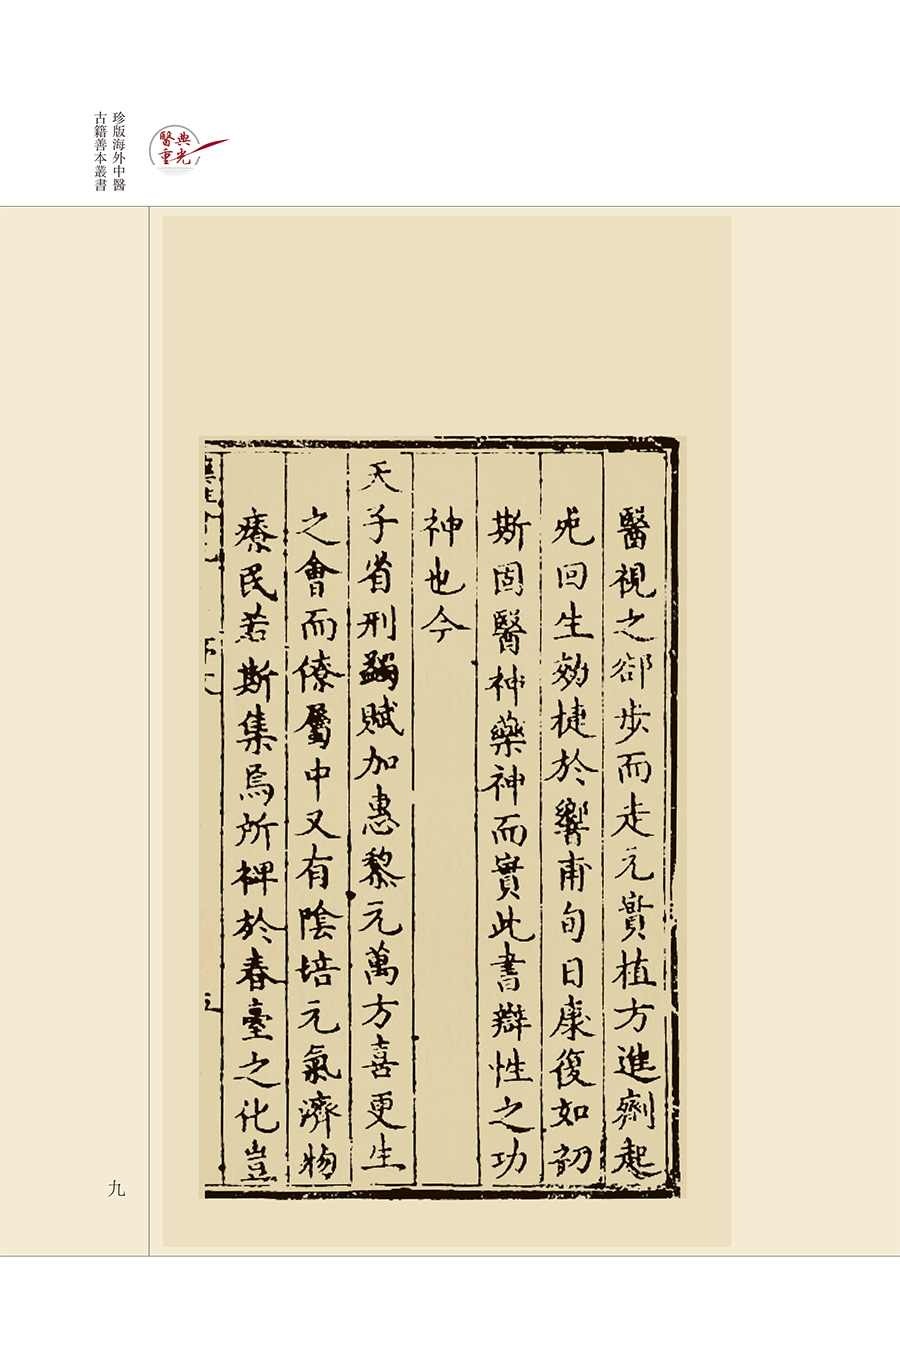 珍版海外中醫
古籍善本叢書
醫典
重光
醫視之郤步而走元實植方進劑起
死回生効捷於響甫旬日康復如初
斯固醫神藥神而實此書辯性之功
神也今
天子省刑蠲賦加惠黎元萬方喜更生
之會而僚屬中又有陰培元氣濟物
療民若斯集焉所裨於春臺之化豈
九